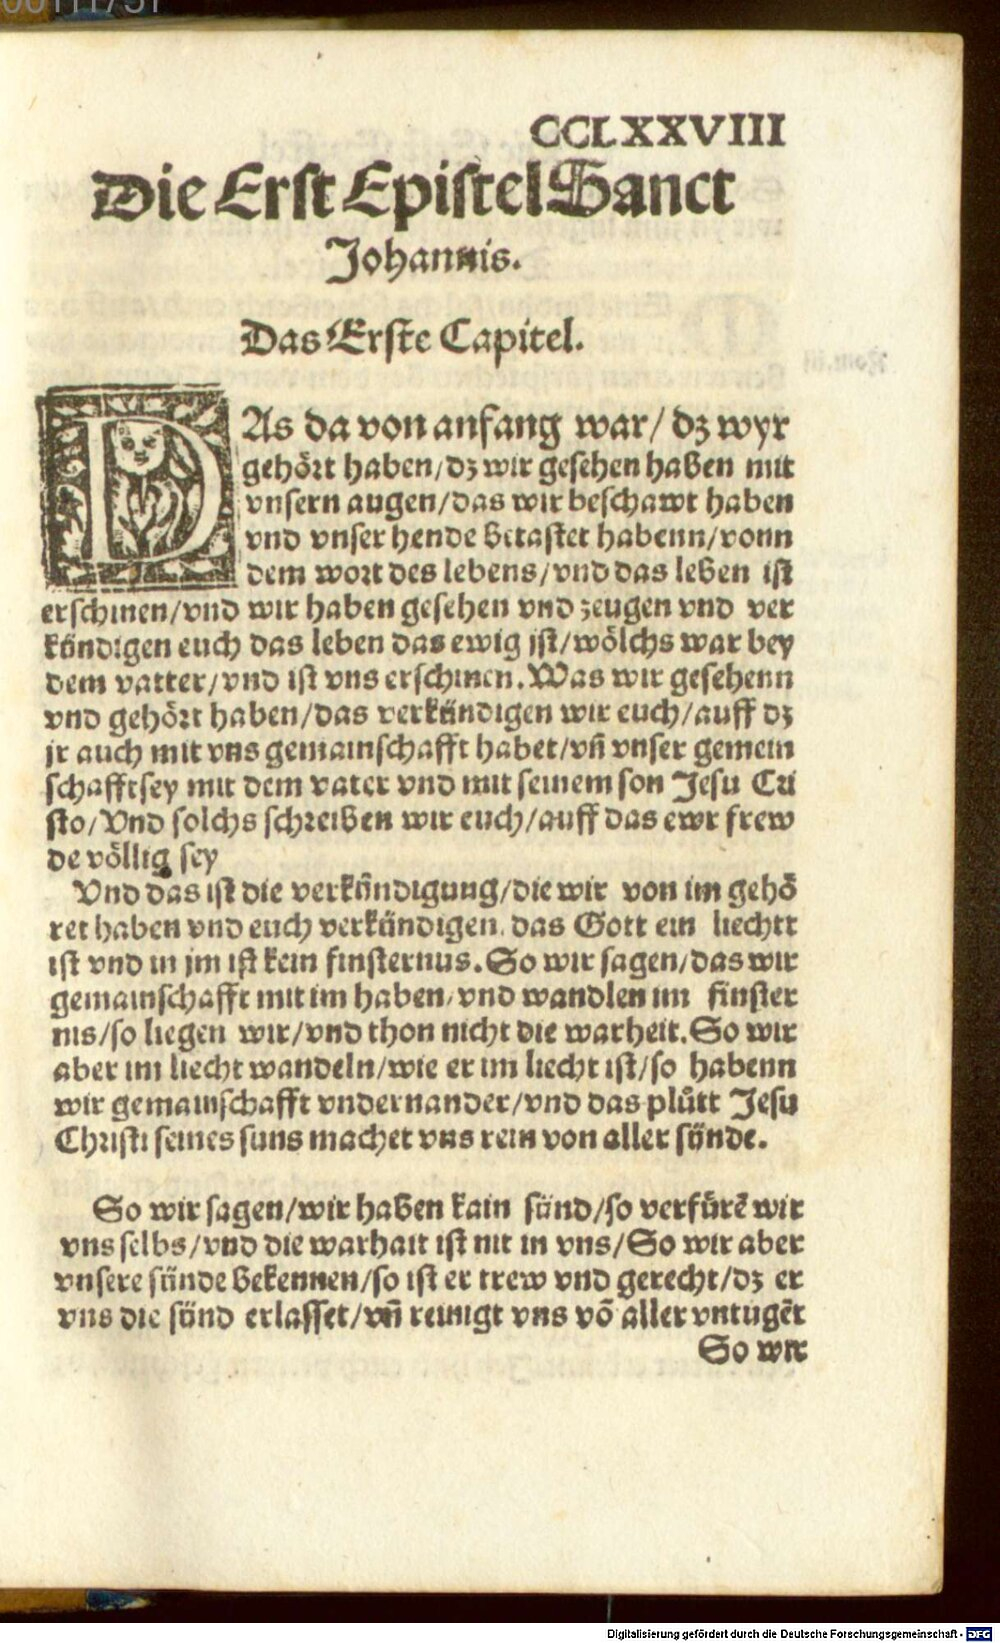 CCLXXVIII
Die Erst Epistel Sanct
Johannis.
Das Erste Capitel.
DAs da von anfang war/ dz wyr
gehört haben/dz wir gesehen haben mit
vnsern augen/das wir beschawt haben
vnd vnser hende betastet habenn/vonn
dem wort des lebens/vnd das leben ist
erschinen/vnd wir haben gesehen vnd zeugen vnd ver
kündigen euch das leben das ewig ist/wölchs war bey
dem vatter/vnd ist vns erschinen. Was wir gesehenn
vnd gehört haben/das verkündigen wir euch/auff dz
jr auch mit vns gemainschafft habet/vñ vnser gemein
schafft sey mit dem vater vnd mit seinem son Jesu Cri
sto/Vnd solchs schreiben wir euch/auff das ewr frew
de völlig sey
Vnd das ist die verkündigung/die wir von im gehö
ret haben vnd euch verkündigen. das Gott ein liechtt
ist vnd in jm ist kein finsternus. So wir sagen/das wir
gemainschafft mit im haben/vnd wandlen im finster
nis/so liegen wir/vnd thon nicht die warheit. So wir
aber im liecht wandeln/wie er im liecht ist/so habenn
wir gemainschafft vndernander/vnd das plůtt Jesu
Christi seines suns machet vns rein von aller sünde.
So wir sagen/wir haben kain sünd/so verfürẽ wir
vns selbs/vnd die warhait ist nit in vns/So wir aber
vnsere sünde bekennen/so ist er trew vnd gerecht/dz er
vns die sünd erlasset/vñ reinigt vns võ aller vntugẽt
So wir
Digitalisierung gefördert durch die Deutsche Forschungsgemeinschaft - DFG